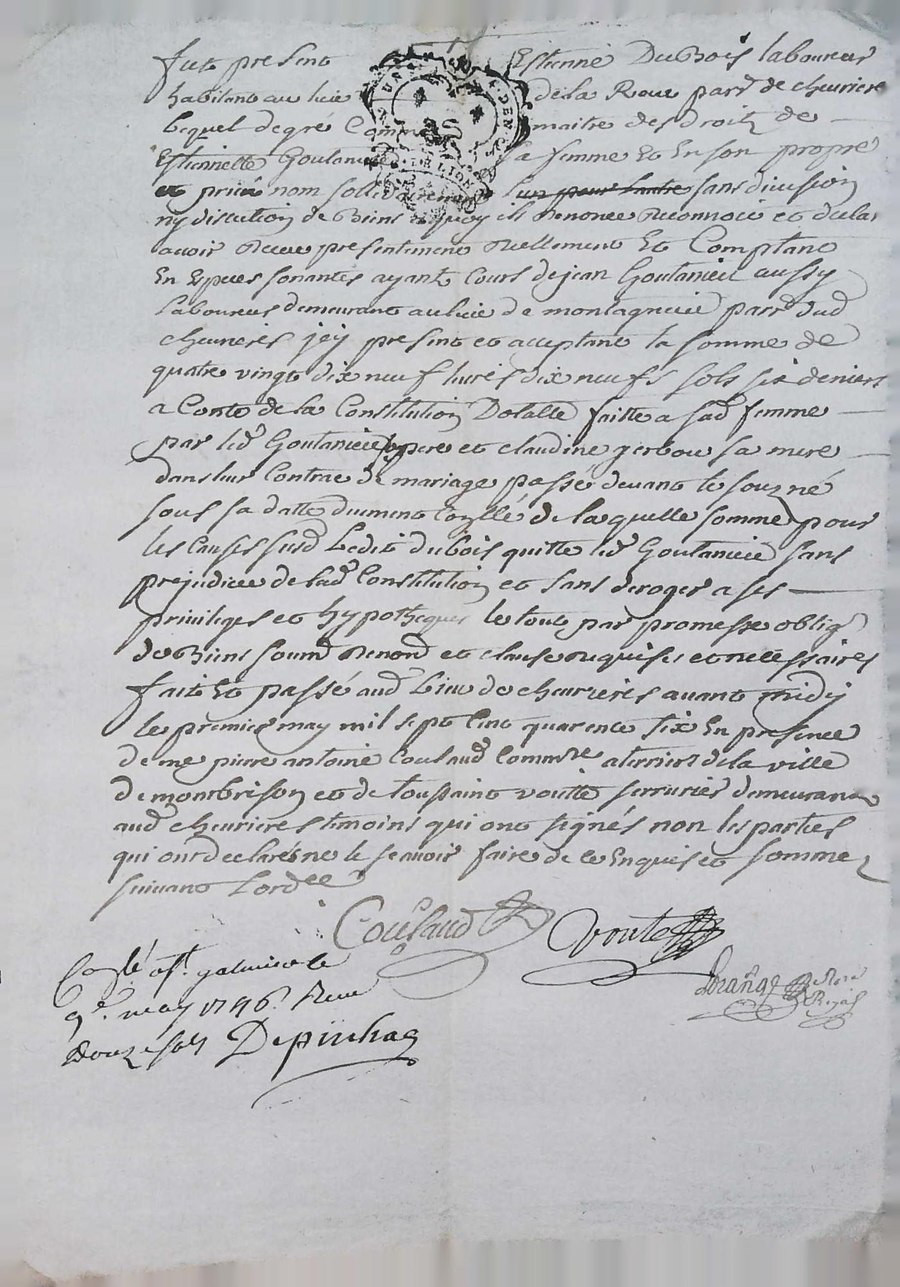 fut present Estienne DuBois laboureur
habitant au lieu de la Roue parr^e de cheuriere
Lequel de gré Comme maitre des droitz de
Estiennette Goutanieu sa femme Et En son propre
et privé nom sollidairement l'un pour l'autre sans division
ny discution de Biens a quoy il Renonce Reconnoit et declar
avoir Receu presentement Reellement Et Comptant
En Especes sonantes ayant Cours de jean Goutanieu aussy
Laboureur demeurant au lieu de montagneu parr^e dud
cheurieres jcy present et acceptant la somme de
quatre vingt dix neuf livres dix neufs sols six deniers
a Conte de la Constitution Dotalle faitte a sad femme
par led Goutanieu pere et claudine gerbou sa mere
dans leur Contrat de mariage passé devant le souzné
sous sa datte duement Conllé de laquelle somme pour
les Causes susd Ledit dubois quitte led Goutanieu sans
prejudice de lad Constitution et sans deroger a ses
privileges et hypotheques le tout par promesse oblig
de Biens soumd Renond et clause requises et necessaires
fait Et passé aud Lieu de cheurieres avant midy
Le premier may mil sept Cent quarente six En presence
de me pierre antoine Coulaud Commre a terrier de la ville
De montbrison et de toussaint voutte serrurier demeurant
aud cheurieres temoins qui ont signés non les parties
qui ont declarés ne le sçavoir faire de ce Enquis et sommez
suivant Lord^ce
Coulaud voute
Notre Royal
Conllé a st galmier le
9^e may 1746 Receu
Douze sols Depinhac